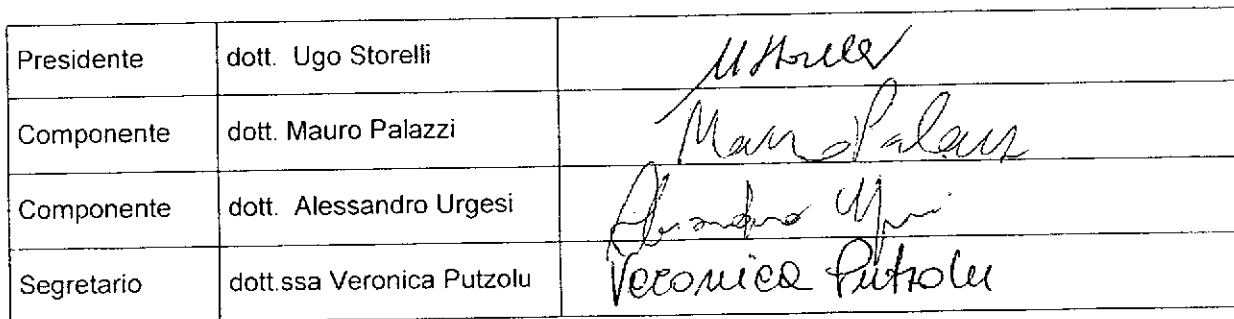 Presidente dott. Ugo Storelli UStorelli
Componente dott. Mauro Palazzi Mauro Palazzi
Componente dott. Alessandro Urgesi Alessandro
Segretario dott.ssa Veronica Putzolu Veronica Putzolu